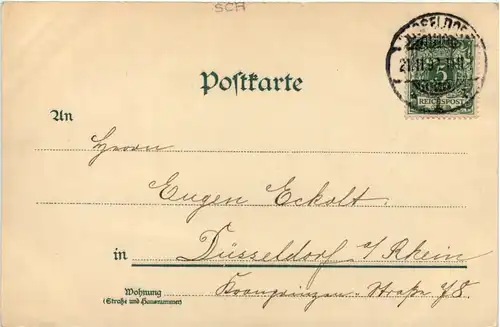 SCH
DÜSSELDORF
21.11.97.10-11
5
REICHSPOST
Postkarte
An
Herrn
Eugen Eckolt.
in Düsseldorf a/Rhein
Wohnung
(Straße und Hausnummer)
Kronprinzen-Straße 78.